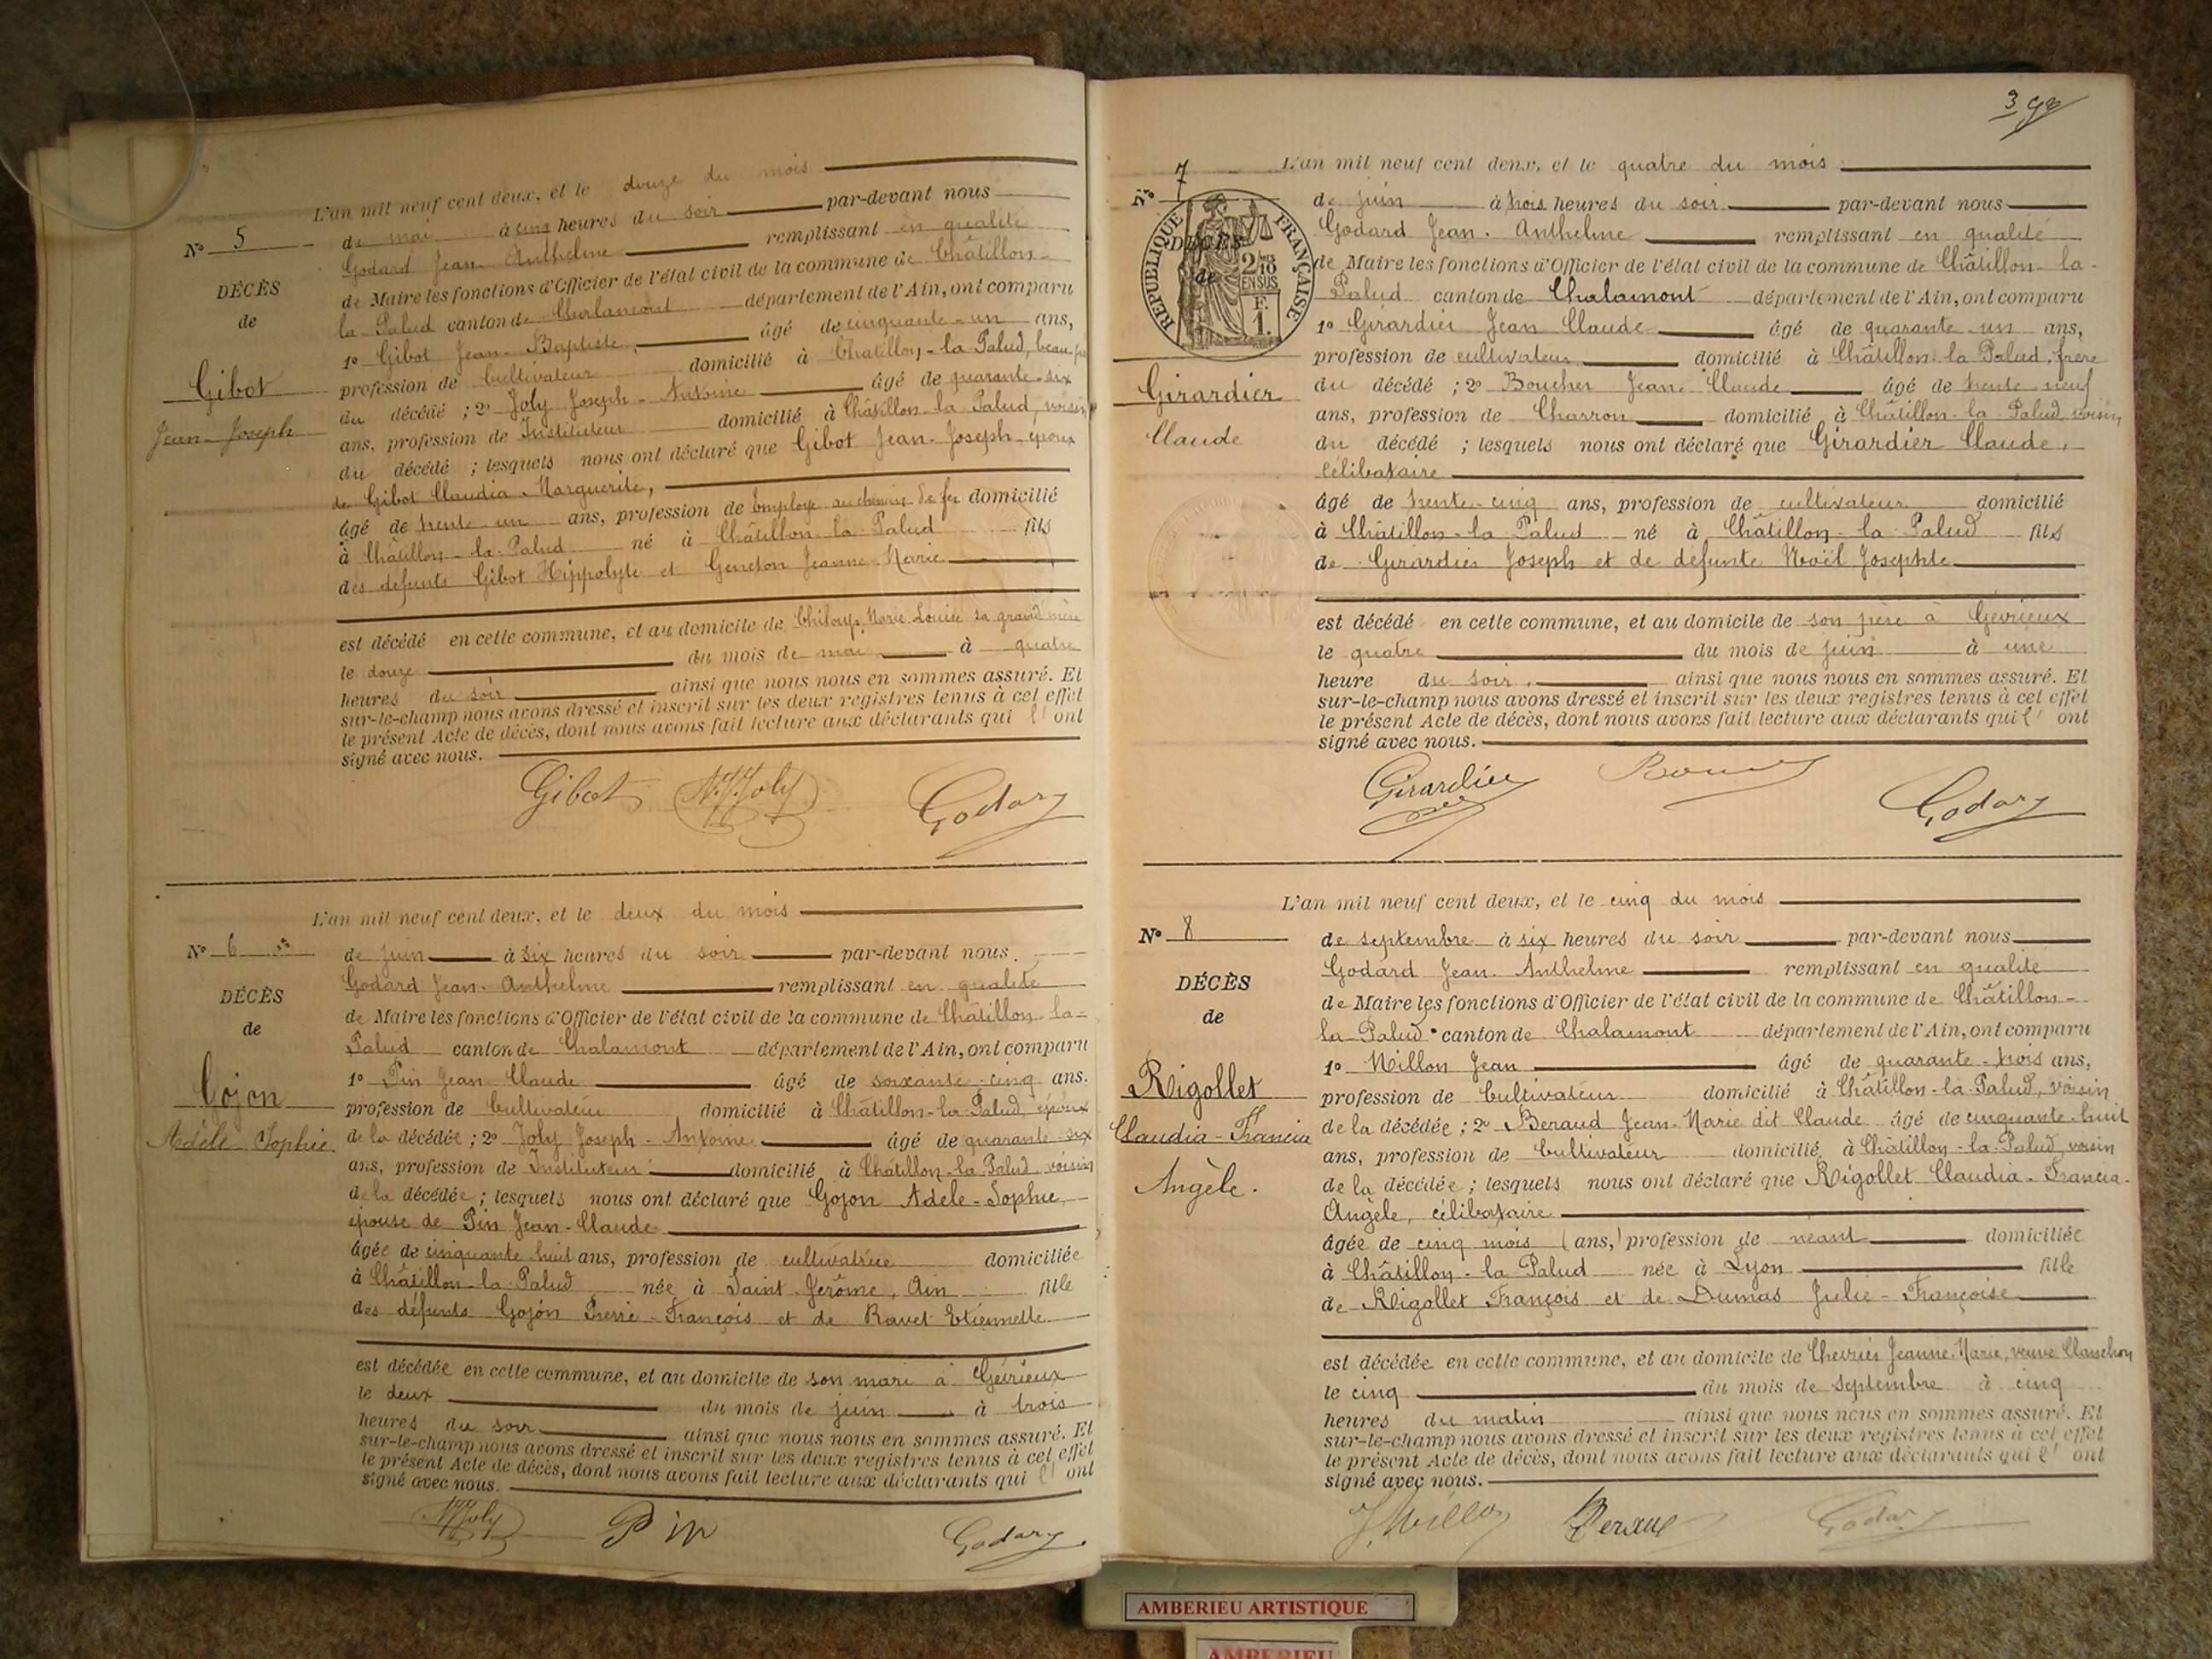 L'an mil neuf cent deux, et le douze du mois
Nº 5
de mai à cinq heures du soir par-devant nous
Godard Jean-Anthelme remplissant en qualité
DÉCÈS
de Maire les fonctions d'Officier de l'état civil de la commune de Châtillon-
de
la-Palud canton de Chalamont département de l'Ain, ont comparu
1º Gibot Jean-Baptiste, âgé de cinquante-un ans,
Gibot
profession de Cultivateur domicilié à Châtillon-la-Palud,
Jean-Joseph
du décédé ; 2º Joly Joseph-Antoine âgé de quarante-six
ans, profession de Instituteur domicilié à Châtillon-la-Palud, voisin
du décédé ; lesquels nous ont déclaré que Gibot Jean-Joseph, époux
de Gibot Claudia-Marguerite,
âgé de trente-un ans, profession de Employé au chemin de fer domicilié
à Châtillon-la-Palud né à Châtillon-la-Palud fils
des défunts Gibot Hippolyte et Jeanne-Marie
est décédé en cette commune, et au domicile de Marie-Louise sa grand'mère
le douze du mois de mai à quatre
heures du soir ainsi que nous nous en sommes assuré. Et
sur-le-champ nous avons dressé et inscrit sur les deux registres tenus à cet effet
le présent Acte de décès, dont nous avons fait lecture aux déclarants qui l'ont
signé avec nous.
Gibot Joly Godard
L'an mil neuf cent deux, et le deux du mois
Nº 6
de juin à six heures du soir par-devant nous
Godard Jean-Anthelme remplissant en qualité
DÉCÈS
de Maire les fonctions d'Officier de l'état civil de la commune de Châtillon-la-
de
Palud canton de Chalamont département de l'Ain, ont comparu
1º Pin Jean-Claude âgé de soixante-cinq ans.
Gojon
profession de Cultivateur domicilié à Châtillon-la-Palud, époux
Adèle-Sophie
de la décédée ; 2º Joly Joseph-Antoine âgé de quarante-six
ans, profession de Instituteur domicilié à Châtillon-la-Palud, voisin
de la décédée ; lesquels nous ont déclaré que Gojon Adèle-Sophie,
épouse de Pin Jean-Claude
âgée de cinquante-huit ans, profession de cultivatrice domiciliée
à Châtillon-la-Palud née à Saint-Jérôme, Ain fille
des défunts Gojon Pierre-François et de Ravet Etiennette
est décédée en cette commune, et au domicile de son mari à Gévrieux
le deux du mois de juin à trois
heures du soir ainsi que nous nous en sommes assuré. Et
sur-le-champ nous avons dressé et inscrit sur les deux registres tenus à cet effet
le présent Acte de décès, dont nous avons fait lecture aux déclarants qui l'ont
signé avec nous.
Joly Pin Godard
L'an mil neuf cent deux, et le quatre du mois
Nº 7
de juin à trois heures du soir par-devant nous
Godard Jean-Anthelme remplissant en qualité
RÉPUBLIQUE FRANÇAISE
2/10 EN SUS
F. 1.
DÉCÈS
de
de Maire les fonctions d'Officier de l'état civil de la commune de Châtillon-la-
Palud canton de Chalamont département de l'Ain, ont comparu
1º Girardier Jean Claude âgé de quarante-un ans,
profession de cultivateur domicilié à Châtillon-la-Palud, frère
Girardier
du décédé ; 2º Boucher Jean-Claude âgé de trente-neuf
ans, profession de Charron domicilié à Châtillon-la-Palud, voisin
Claude
du décédé ; lesquels nous ont déclaré que Girardier Claude,
célibataire
âgé de trente-cinq ans, profession de cultivateur domicilié
à Châtillon-la-Palud né à Châtillon-la-Palud fils
de Girardier Joseph et de défunte Noël Josephte
est décédé en cette commune, et au domicile de son père à Gévrieux
le quatre du mois de juin à une
heure du soir, ainsi que nous nous en sommes assuré. Et
sur-le-champ nous avons dressé et inscrit sur les deux registres tenus à cet effet
le présent Acte de décès, dont nous avons fait lecture aux déclarants qui l'ont
signé avec nous.
Girardier Godard
L'an mil neuf cent deux, et le cinq du mois
Nº 8
de septembre à six heures du soir par-devant nous
Godard Jean-Anthelme remplissant en qualité
DÉCÈS
de Maire les fonctions d'Officier de l'état civil de la commune de Châtillon-
de
la-Palud canton de Chalamont département de l'Ain, ont comparu
1º Millon Jean âgé de quarante-trois ans,
Rigollet
profession de Cultivateur domicilié à Châtillon-la-Palud, voisin
Claudia-Francia
de la décédée ; 2º Beraud Jean-Marie dit Claude âgé de cinquante-huit
ans, profession de Cultivateur domicilié à Châtillon-la-Palud, voisin
Angèle.
de la décédée ; lesquels nous ont déclaré que Rigollet Claudia-Francia-
Angèle, célibataire
âgée de cinq mois (ans,) profession de néant domiciliée
à Châtillon-la-Palud née à Lyon fille
de Rigollet François et de Dumas Julie-Françoise
est décédée en cette commune, et au domicile de Chevrier Jeanne-Marie, veuve
le cinq du mois de septembre à cinq
heures du matin ainsi que nous nous en sommes assuré. Et
sur-le-champ nous avons dressé et inscrit sur les deux registres tenus à cet effet
le présent Acte de décès, dont nous avons fait lecture aux déclarants qui l'ont
signé avec nous.
J. Millon Beraud Godard
AMBERIEU ARTISTIQUE
AMBERIEU